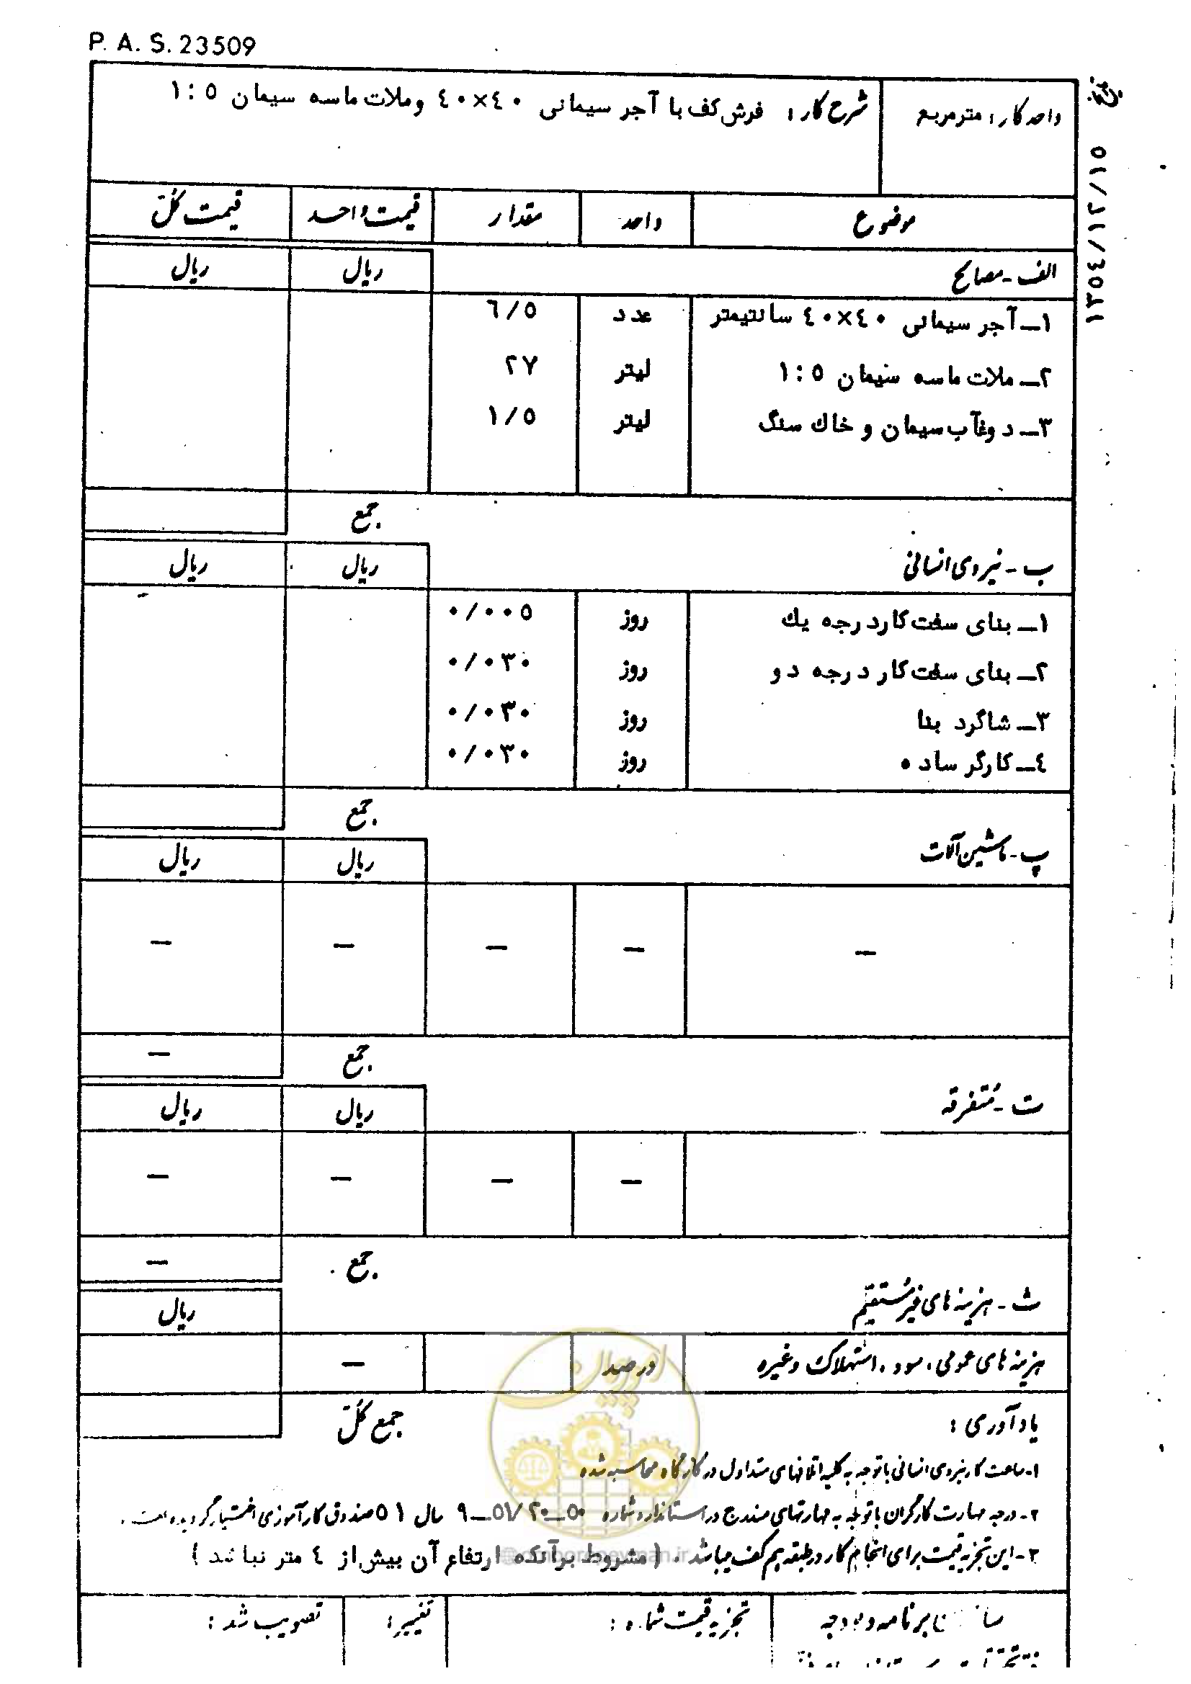 P. A. S. 23509
واحد کار: مترمربع
شرح کار: فرش کف با آجر سیمانی ٤٠×٤٠ و ملات ماسه سیمان ١:٥
١٣٥٤/١٢/١٥
موضوع واحد مقدار قیمت واحد قیمت کل
الف - مصالح ریال ریال
١ــ آجر سیمانی ٤٠×٤٠ سانتیمتر عدد ٦/٥
٢ــ ملات ماسه سیمان ١:٥ لیتر ٢٧
٣ــ دوغآب سیمان و خاك سنگ لیتر ١/٥
جمع
ب - نیروی انسانی ریال ریال
١ــ بنای سفت کار درجه یك روز ٠/٠٠٥
٢ــ بنای سفت کار درجه دو روز ٠/٠٣٠
٣ــ شاگرد بنا روز ٠/٠٣٠
٤ــ کارگر ساده روز ٠/٠٣٠
جمع
پ - ماشین آلات ریال ریال
ـ ـ ـ ـ ـ
جمع ـ
ت - متفرقه ریال ریال
ـ ـ ـ ـ
جمع ـ
ث - هزینه های غیرمستقیم ریال
هزینه های عمومی، سود، استهلاک وغیره درصد ـ
یادآوری: جمع کل
١- ساعت کار نیروی انسانی با توجه به کلیه اتلافهای متداول در کارگاه محاسبه شده
٢- درجه مهارت کارگران با توجه به مهارتهای مندرج در استاندارد شماره ٥٠ــ٢٠/٥١ــ٩ سال ٥١ صندوق کارآموزی اختیار گردیده است.
٣- این تجزیه قیمت برای انجام کار در طبقه هم کف میباشد. (مشروط برآنکه ارتفاع آن بیش از ٤ متر نباشد)
برنامه و بودجه تجزیه قیمت شماره: تغییر: تصویب شد: